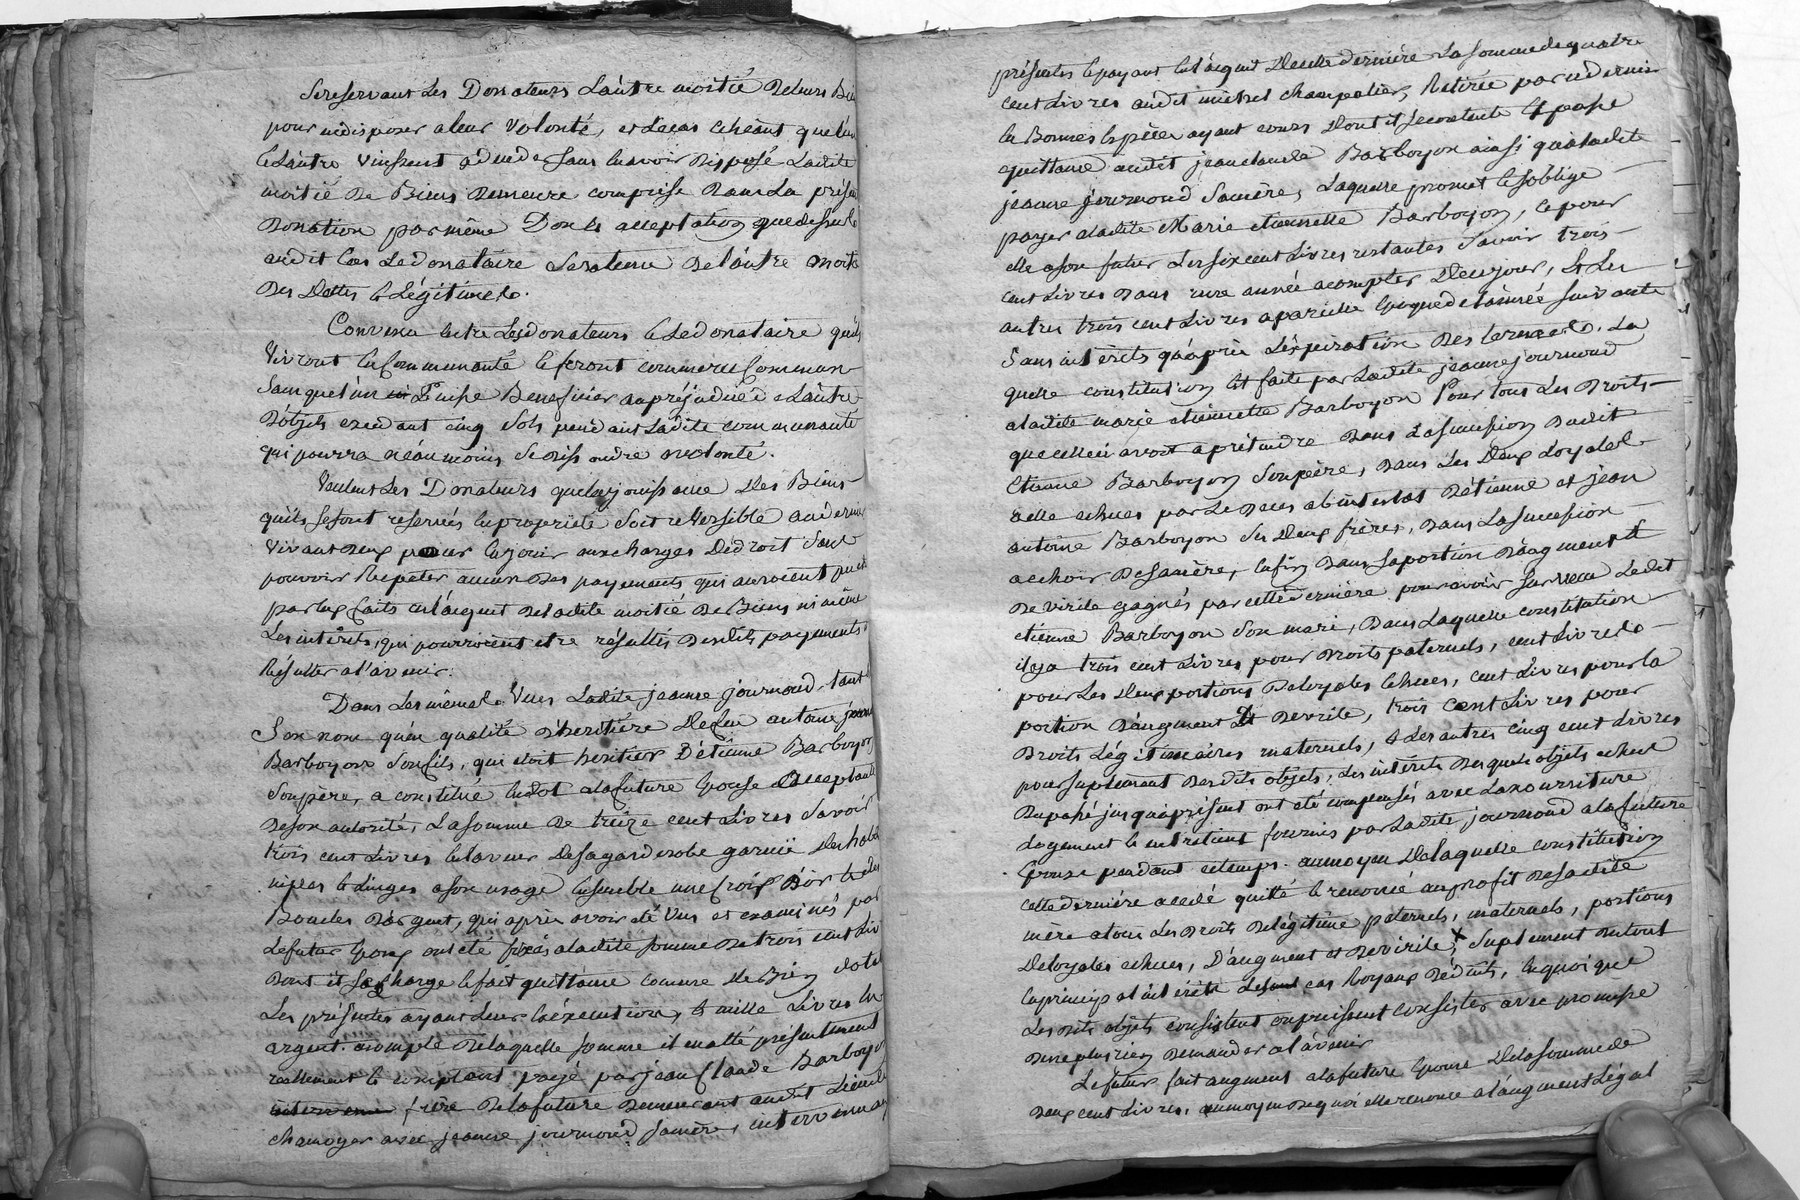 Se reservant Les Donateurs L'autre moitié de leurs Bi
pour en disposer a leur Volonté, et Le cas echéant que L'un
et L'autre vinssent a deceder sans en avoir disposé Ladite
moitié de Biens demeure comprise dans La prése
Donation par même Don et acceptation que dessus et
audit Cas Le donataire sera tenu de L'autre moit
des Dettes et Légitimes.
Convenu entre Les donateurs et Le donataire quils
Vivront en Communauté et feront commerce Commun
sans que L'un Puisse Beneficier au préjudice de L'autre
d'objets excedant cinq sols pendant Ladite communauté
qui pourra néanmoins se dissoudre a volonté.
Veulent Les Donateurs que La jouissance des Biens
quils se sont reservés en proprieté soit reversible au dernier
Vivant deux pour en jouir aux charges de droit sans
pouvoir Repeter aucun des payements qui auroient pu et
par eux faits en L'acquit de Ladite moitié de Biens ni même
Les interets, qui pourroient etre résultés desdits payements
Résulter a l'avenir.
Dans Les mêmes Vues Ladite jeanne journoud, tant
Son nom qu'en qualité d'heritière de feu antoine
Barboyon Son fils, qui etoit heritier D'etienne Barboyon
Son père, a constitué en dot a La future Epouse acceptante
de son autorité, La somme de treize cent Livres Savoir
trois cent Livres en La valeur de Sa garderobe garnie de
nipes et Linges a son usage ensemble une Croix d'or et des
Boucles d'argent, qui après avoir été Vus et examinés par
Le futur Epoux ont été fixés a Ladite somme de trois cent Liv
dont il se charge et fait quittance comme de Bien dotal
Les présentes ayant Leur Exécution, et mille Livres en
argent. a compte de Laquelle somme il en a été présentement
reellement et comptant payé par jean Claude Barboyo
frère de La future demeurant audit Lieu de
chamoyer avec jeanne journoud sa mère, intervenu
présentes et payant en L'acquit de cette dernière La somme de quatre
cent Livres audit michel champalier, Retirée par ce dernier
en Bonnes Espèces ayant cours dont il se contente Et passe
quittance audit jean claude Barboyon ainsi qu'a Ladite
jeanne journoud Sa mère, Laquelle promet et s'oblige
payer a Ladite Marie etiennette Barboyon, et pour
elle a son futur Les six cent Livres restantes Savoir trois
cent Livres dans une année a compter de ce jour, Et Les
autres trois cent Livres a pareille Epoque de L'année suivante
Sans intérets qu'après L'éxpiration des termes. La
quelle constitution est faite par Ladite jeanne journoud
a Ladite marie etiennette Barboyon Pour tous Les droits
que celle ci avoit a prétendre dans La succession dudit
Etienne Barboyon Son père, dans Les Deux Loyales
a elle echues par Le deces ab intestat d'etienne et jean
antoine Barboyon ses Deux frères, dans La succession
a echoir de Sa mère, enfin dans La portion d'augment Et
de virile gagnés par cette dernière pour avoir Survecu Ledit
etienne Barboyon Son mari, dans Laquelle constitution
il y a trois cent Livres pour droits paternels, cent Livres
pour Les Deux portions de Loyales echues, cent Livres pour la
portion d'augment Et de virile, trois cent Livres pour
droits Légitimaires maternels, et Les autres cinq cent Livres
pour suplement desdits objets, Les intérêts desquels objets echus
du passé jusqu'a présent ont été compensés avec La nourriture
Logement et entretient fournis par Ladite journoud a La future
Epouse pendant ce temps. au moyen de Laquelle constitution
cette dernière a cédé quitté et renoncé au profit de Sadite
mère a tous Les Droits de Légitime paternels, maternels, portions
de Loyales echues, D'augment et de virile, X Suplement du tout
en principal et intérêts cas Loyaux déduits, en quoi que
Lesdits objets consistent ou puissent consister avec promesse
de ne plus rien demander a L'avenir
Le futur fait augment a La future Epouse de La somme de
deux cent Livres, au moyen de quoi elle renonce a L'augment Légal